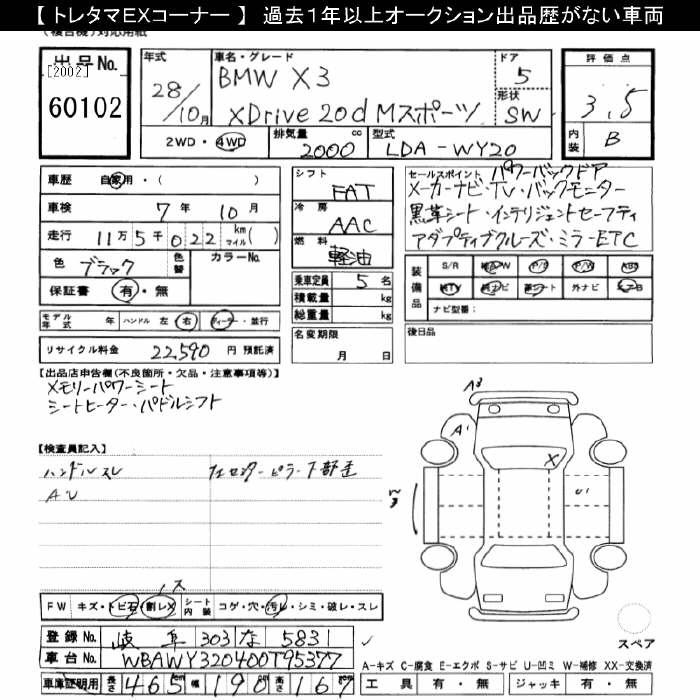 【 トレタマEXコーナー 】 過去1年以上オークション出品歴がない車両
(複合機)対応用紙
出品No.
[2002]
60102
年式
28/10月
車名・グレード
BMW X3
XDrive 20d Mスポーツ
ドア
5
形状
SW
2WD・4WD
排気量
2000 cc
型式
LDA-WY20
評価点
3.5
内装
B
車歴 自家用・( )
車検 7年 10月
走行 11万5千022 km マイル( )
色 ブラック 色替
カラーNo.
保証書 有・無
モデル年式 年 ハンドル 左 右 ディーラー・並行
リサイクル料金 22,590 円 預託済
シフト
FAT
冷房
AAC
燃料
軽油
乗車定員 5 名
積載量 kg
総重量 kg
名変期限
月 日
セールスポイント パワーバックドア
メーカーナビ・TV・バックモニター
黒革シート・インテリジェントセーフティ
アダプティブクルーズ・ミラーETC
装備品
S/R 純AW P/S P/W ABS
純TV 純ナビ 革シート 外ナビ エアB
ナビ型番:
後日品
【出品店申告欄(不良箇所・欠品・注意事項等)】
メモリーパワーシート
シートヒーター・パドルシフト
【検査員記入】
ハンドルスレ
AU
A3
A1
X
U1
FW キズ・トビ石・割レX
シート内装 コゲ・穴・汚レ・シミ・破レ・スレ
登録No. 岐阜 303 な 5831
車台No. WBAWY320400T95377
車庫証明用 長さ 465cm 幅 190cm 高さ 167cm
スペア
A-キズ C-腐食 E-エクボ S-サビ U-凹ミ W-補修 XX-交換済
工具 有・無 ジャッキ 有・無